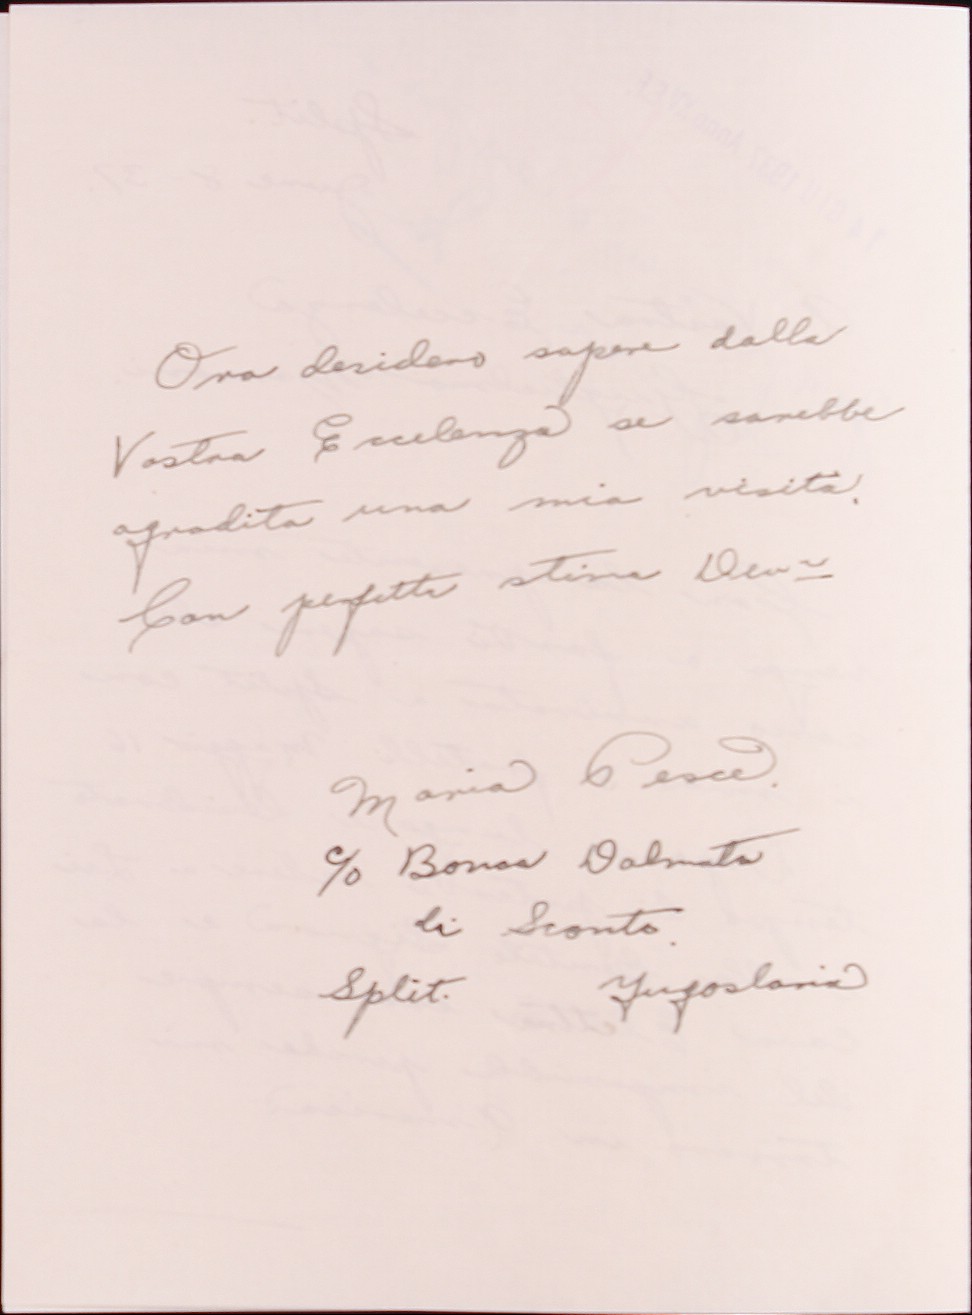 Ora desidero sapere dalla
Vostra Eccelenza se sarebbe
agradita una mia visita.
Con perfetta stima Dev.ma
Maria Pesce.
c/o Banca Dalmata
di Sconto.
Split. Jugoslavia